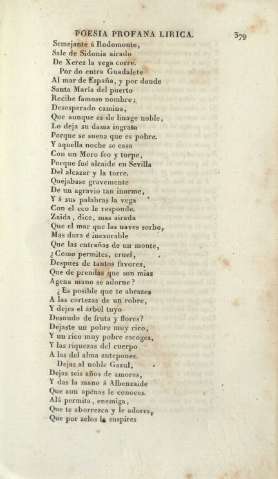 POESIA PROFANA LIRICA. 379
Semejante á Rodomonte,
Sale de Sidonia airado
De Xerez la vega corre.
Por do entra Guadalete
Al mar de España, y por donde
Santa María del puerto
Recibe famoso nombre;
Desesperado camina,
Que aunque es de linage noble,
Le deja su dama ingrata
Porque se suena que es pobre.
Y aquella noche se casa
Con un Moro feo y torpe,
Porque fué alcaide en Sevilla
Del alcazar y la torre.
Quejábase gravemente
De un agravio tan inorme,
Y á sus palabras la vega
Con el eco le responde.
Zaida, dice, mas airada
Que el mar que las naves sorbe,
Mas dura é inexorable
Que las entrañas de un monte,
¿Como permites, cruel,
Despues de tantos favores,
Que de prendas que son mias
Agena mano se adorne?
¿Es posible que te abraces
A las cortezas de un robre,
Y dejes el árbol tuyo
Desnudo de fruta y flores?
Dejaste un pobre muy rico,
Y un rico muy pobre escoges,
Y las riquezas del cuerpo
A las del alma antepones.
Dejas al noble Gazul,
Dejas seis años de amores,
Y das la mano á Albenzaide
Que aun apénas le conoces.
Alá permita, enemiga,
Que te aborrezca y le adores,
Que por zelos le suspires